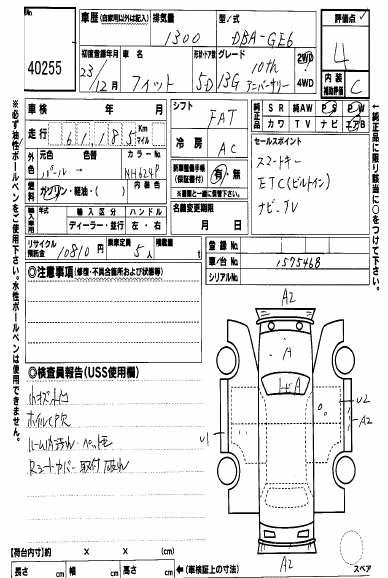 出品No. 40255
車歴(自家用以外は記入)
排気量 1300
型/式 DBA-GE6
評価点 4
初度登録年月 23年12月
車名 フィット
形状・ドア数 5D
グレード 13G 10th アニバーサリー
2WD
4WD
内装 補助評価 C
車検 年 月
シフト FAT
純正品 SR 純AW PS PW
カワ TV ナビ エアB
走行 61,185 Km マイル
冷房 AC
セールスポイント
スマートキー
ETC(ビルトイン)
ナビ TV
外色 元色 色替 カラーNo.
パール → NH624P
燃料 ガソリン・軽油・( ) 内装色
新車整備手帳(保証書付) 有・無
※書類と一緒に保管下さい
輸入車 年式 輸入区分 ハンドル
ディーラー・並行 左・右
名義変更期限 月 日
リサイクル預託金 10810円
乗車定員 5人
積載量 t
登録No.
車/台No. 1575468
シリアルNo.
◎注意事項(修復・不具合箇所および状態等)
◎検査員報告(USS使用欄)
小キズ凹
ホイルキズ
Rシートカバー取付 破れ
A2
A
A
U2
A2
U1
A2
スペア
【荷台内寸】約 × × (cm)
長さ cm 幅 cm 高さ cm ←(車検証上の寸法)
※必ず油性ボールペンをご使用下さい。水性ボールペンは使用できません。
←純正品に限り該当に○をつけて下さい。